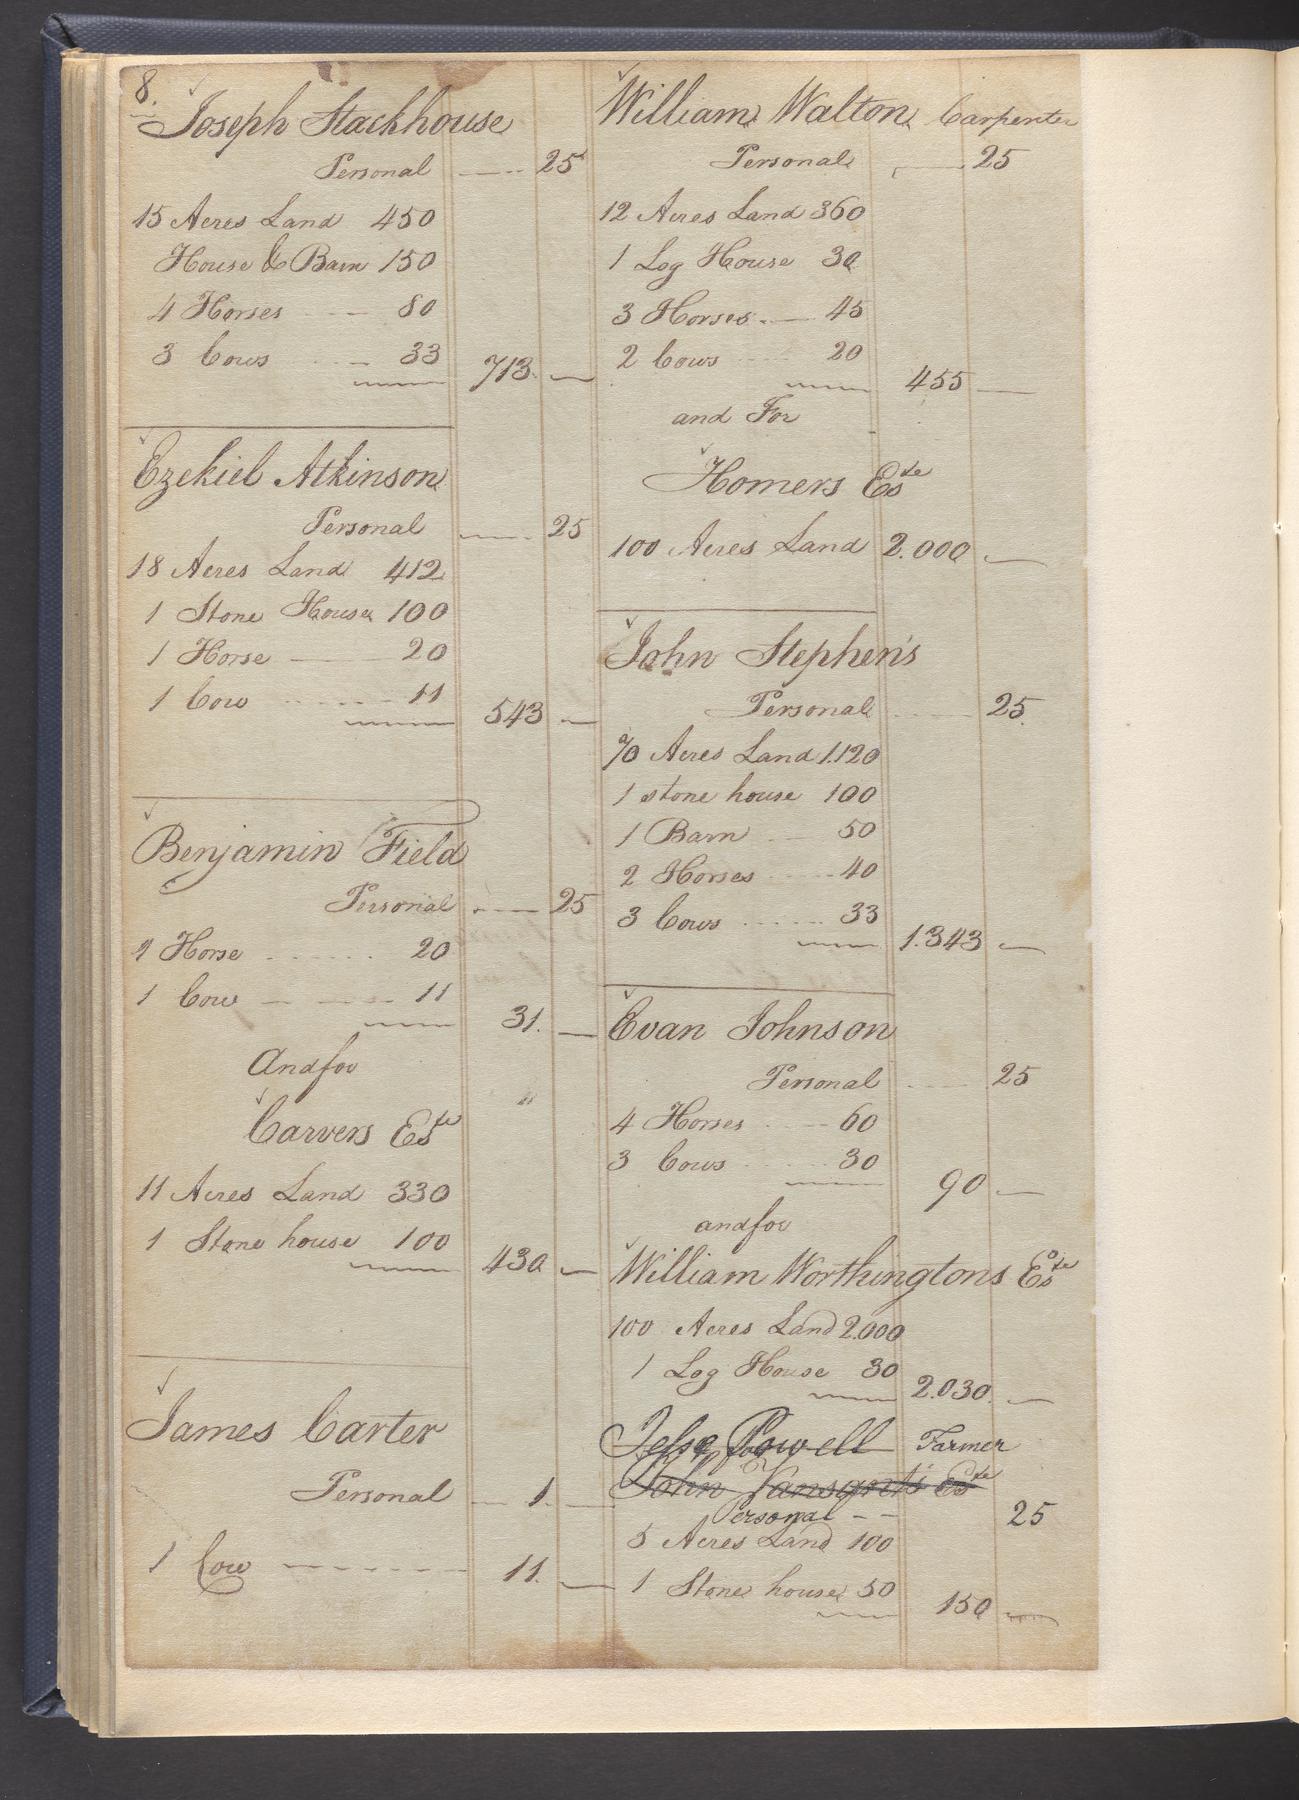 8.
Joseph Stackhouse
Personal 25
15 Acres Land 450
House & Barn 150
4 Horses 80
3 Cows 33
713
Ezekiel Atkinson
Personal 25
18 Acres Land 412
1 Stone House 100
1 Horse 20
1 Cow 11
543
Benjamin Field
Personal 25
1 Horse 20
1 Cow 11
31.
And for
Carvers Este
11 Acres Land 330
1 Stone house 100
430
James Carter
Personal 1.
1 Cow 11.
William Walton Carpenter
Personal 25
12 Acres Land 360
1 Log House 30
3 Horses 45
2 Cows 20
455
and For
Homers Este
100 Acres Land 2.000
John Stephen's
Personal 25.
70 Acres Land 1.120
1 stone house 100
1 Barn 50
2 Horses 40
3 Cows 33
1.343
Evan Johnson
Personal 25
4 Horses 60
3 Cows 30
90
and for
William Worthingtons Este
100 Acres Land 2.000
1 Log House 30
2.030.
Jesse Powell Farmer
for
John Vansant's Este
Personal 25
5 Acres Land 100
1 Stone house 50
150